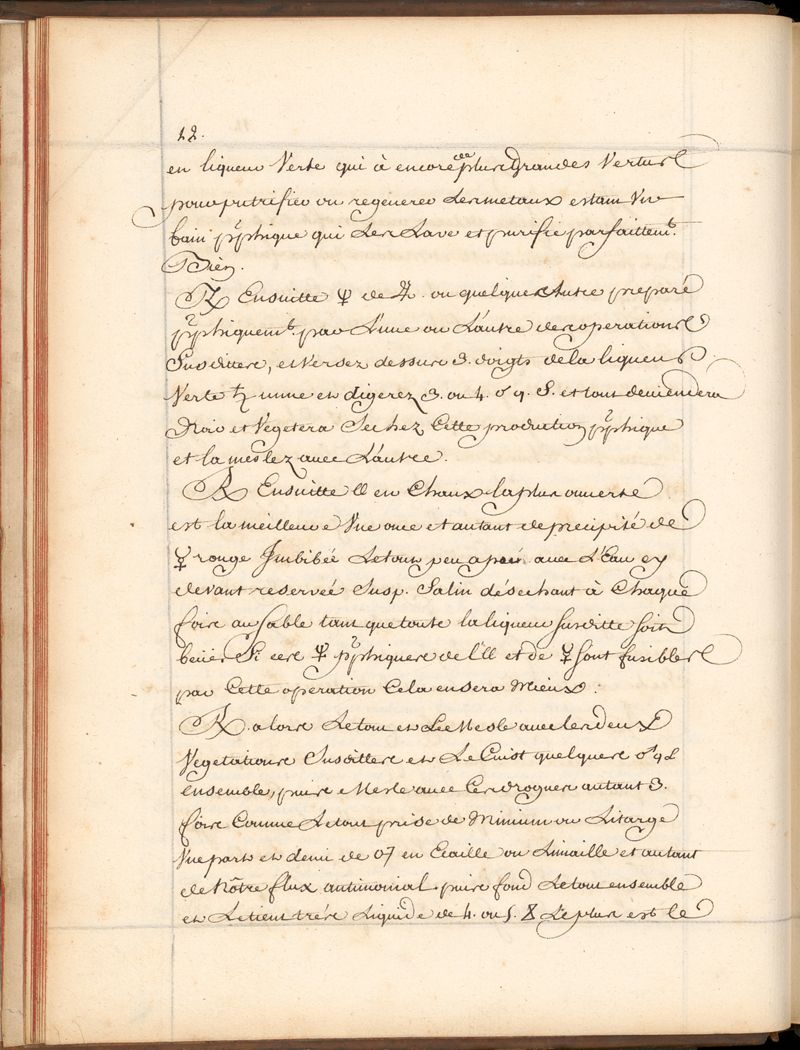 12.
en liqueur Verte qui à encore de plus Grandes Vertus
pour putrifier ou regenerer Les metaux estant Un
bain pphique qui Les Lave et purifie parfaittemt.
Bien.
R Ensuitte 🜍 de ♃ ou quelque Autre preparé
pphiquemt. par L'une ou L'autre des operations
Susdittes, et Versez dessus 3. doigts de la liqueur
Verte et digerez 3. ou 4. et tout deviendera
Noir et Vegetera Sechez Cette production pphique
et la meslez avec L'autre.
R Ensuitte en Chaux la plus ouverte
est la meilleure Une once et autant de precipité de
☿ rouge Imbibéé Le tout peu apeu avec L'Eau cy
devant reserveé Susp. Salin désechant à Chaque
fois au Sable tant que toute la liqueur Susditte Soit
beüe Si ces pphiques de l' et de ☿ Sont fusibles
par Cette operation Cela en sera Mieux.
R. alors Le tout et Le Mesle avec les deux
Vegetations Susdittes et Le Cuist quelques
ensemble, puis Mesle avec Ces drogues autant 3.
fois Comme Le tout prise de Minium ou Litarge
Une part et demi de en Ecaille ou Limaille et autant
de Nôtre flux antimonial. puis fond Le tout ensemble
et Le tient trés Liquide de 4. ou 5. Le plus est le